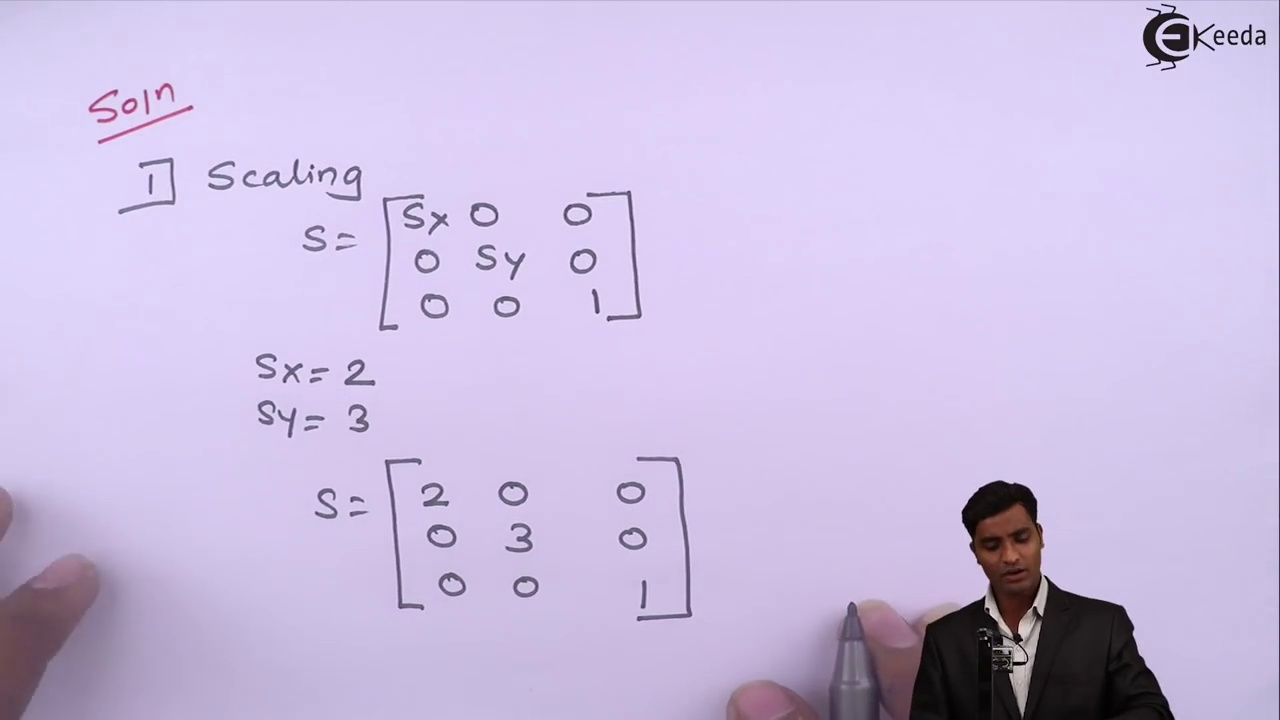 EKeeda
Soln
1] Scaling
S = [Sx 0 0
0 Sy 0
0 0 1]
Sx = 2
Sy = 3
S = [2 0 0
0 3 0
0 0 1]